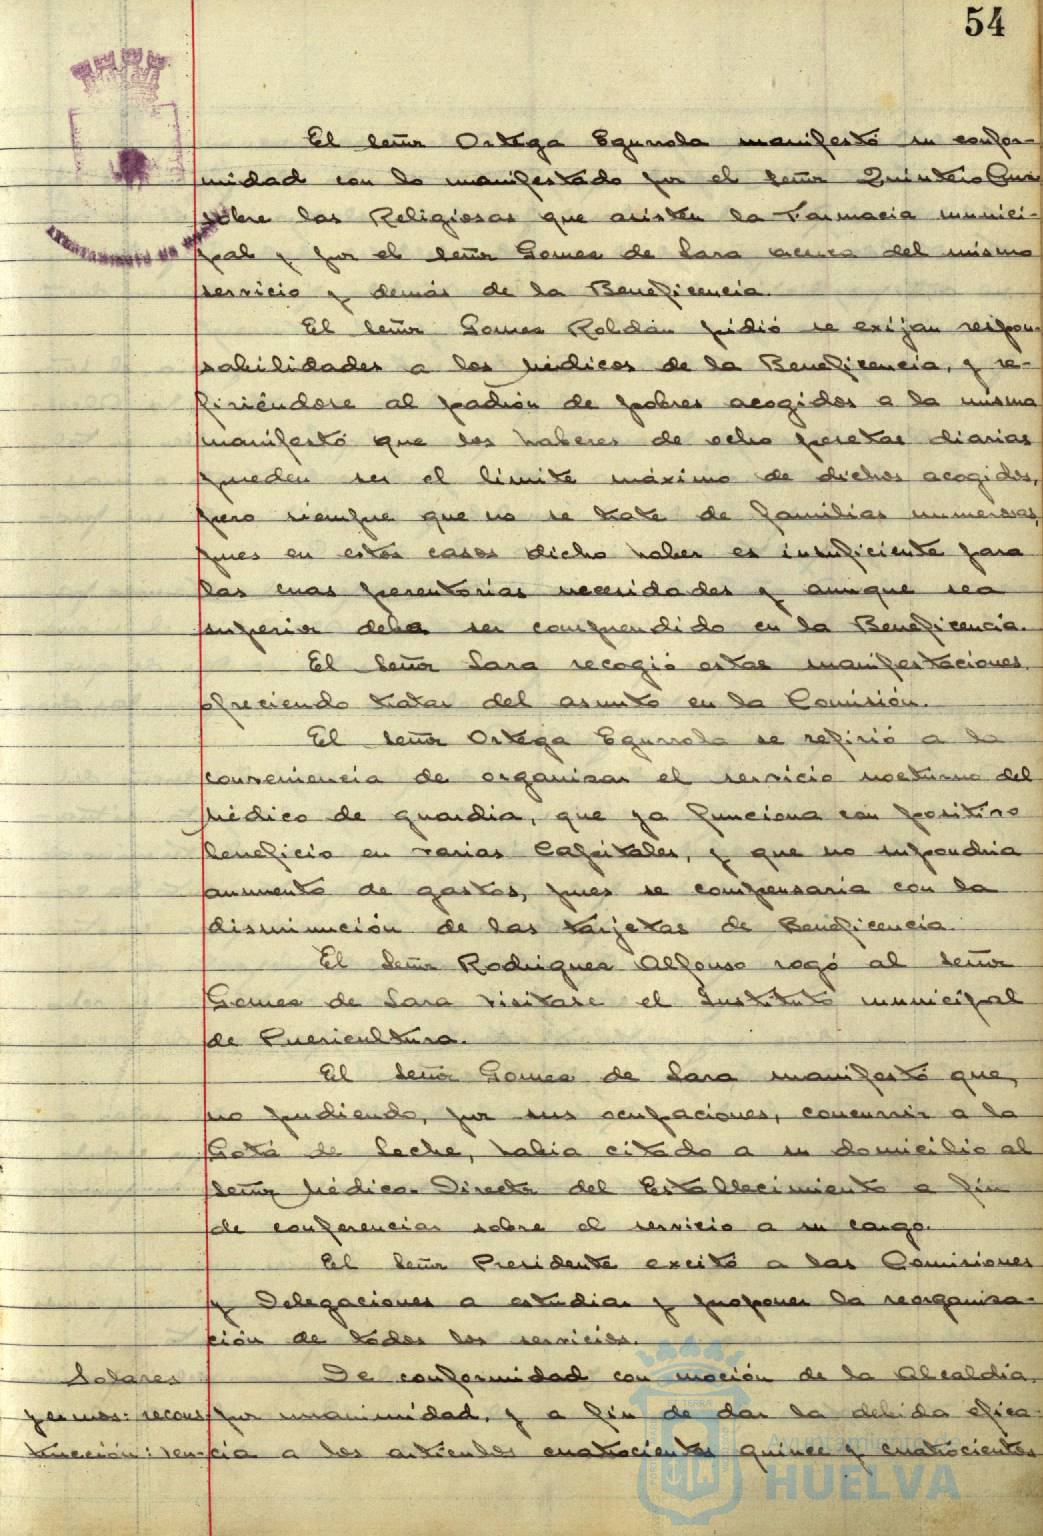 54
El señor Ortega Egurrola manifestó su confor-
midad con lo manifestado por el señor Quintero Guz
sobre las Religiosas que asisten la Farmacia munici-
pal y por el señor Gomez de Lara acerca del mismo
servicio y demás de la Beneficencia.
El señor Gomez Roldán pidió se exijan respon-
sabilidades a los médicos de la Beneficencia, y re-
firiéndose al padrón de pobres acogidos a la misma
manifestó que los haberes de ocho pesetas diarias
pueden ser el límite máximo de dichos acogidos,
pero siempre que no se trate de familias numerosas,
pues en estos casos dicho haber es insuficiente para
las mas perentorias necesidades y aunque sea
superior debe ser comprendido en la Beneficencia.
El señor Lara recogió estas manifestaciones
ofreciendo tratar del asunto en la Comisión.
El señor Ortega Egurrola se refirió a la
conveniencia de organizar el servicio nocturno del
médico de guardia, que ya funciona con positivo
beneficio en varias Capitales, y que no supondria
aumento de gastos, pues se compensaria con la
disminución de las tarjetas de Beneficencia.
El señor Rodriguez Alfonso rogó al señor
Gomez de Lara visitase el Instituto municipal
de Puericultura.
El señor Gomez de Lara manifestó que,
no pudiendo, por sus ocupaciones, concurrir a la
Gota de Leche, habia citado a su domicilio al
señor Médico-Director del Establecimiento a fin
de conferenciar sobre el servicio a su cargo.
El señor Presidente excitó a las Comisiones
y Delegaciones a estudiar y proponer la reorganiza-
ción de todos los servicios.
Solares
yermos: recons
trucción: ven-
De conformidad con moción de la Alcaldía,
por unanimidad, y a fin de dar la debida efica-
cia a los articulos cuatrocientos quince y cuatrocientos
Ayuntamiento de
HUELVA